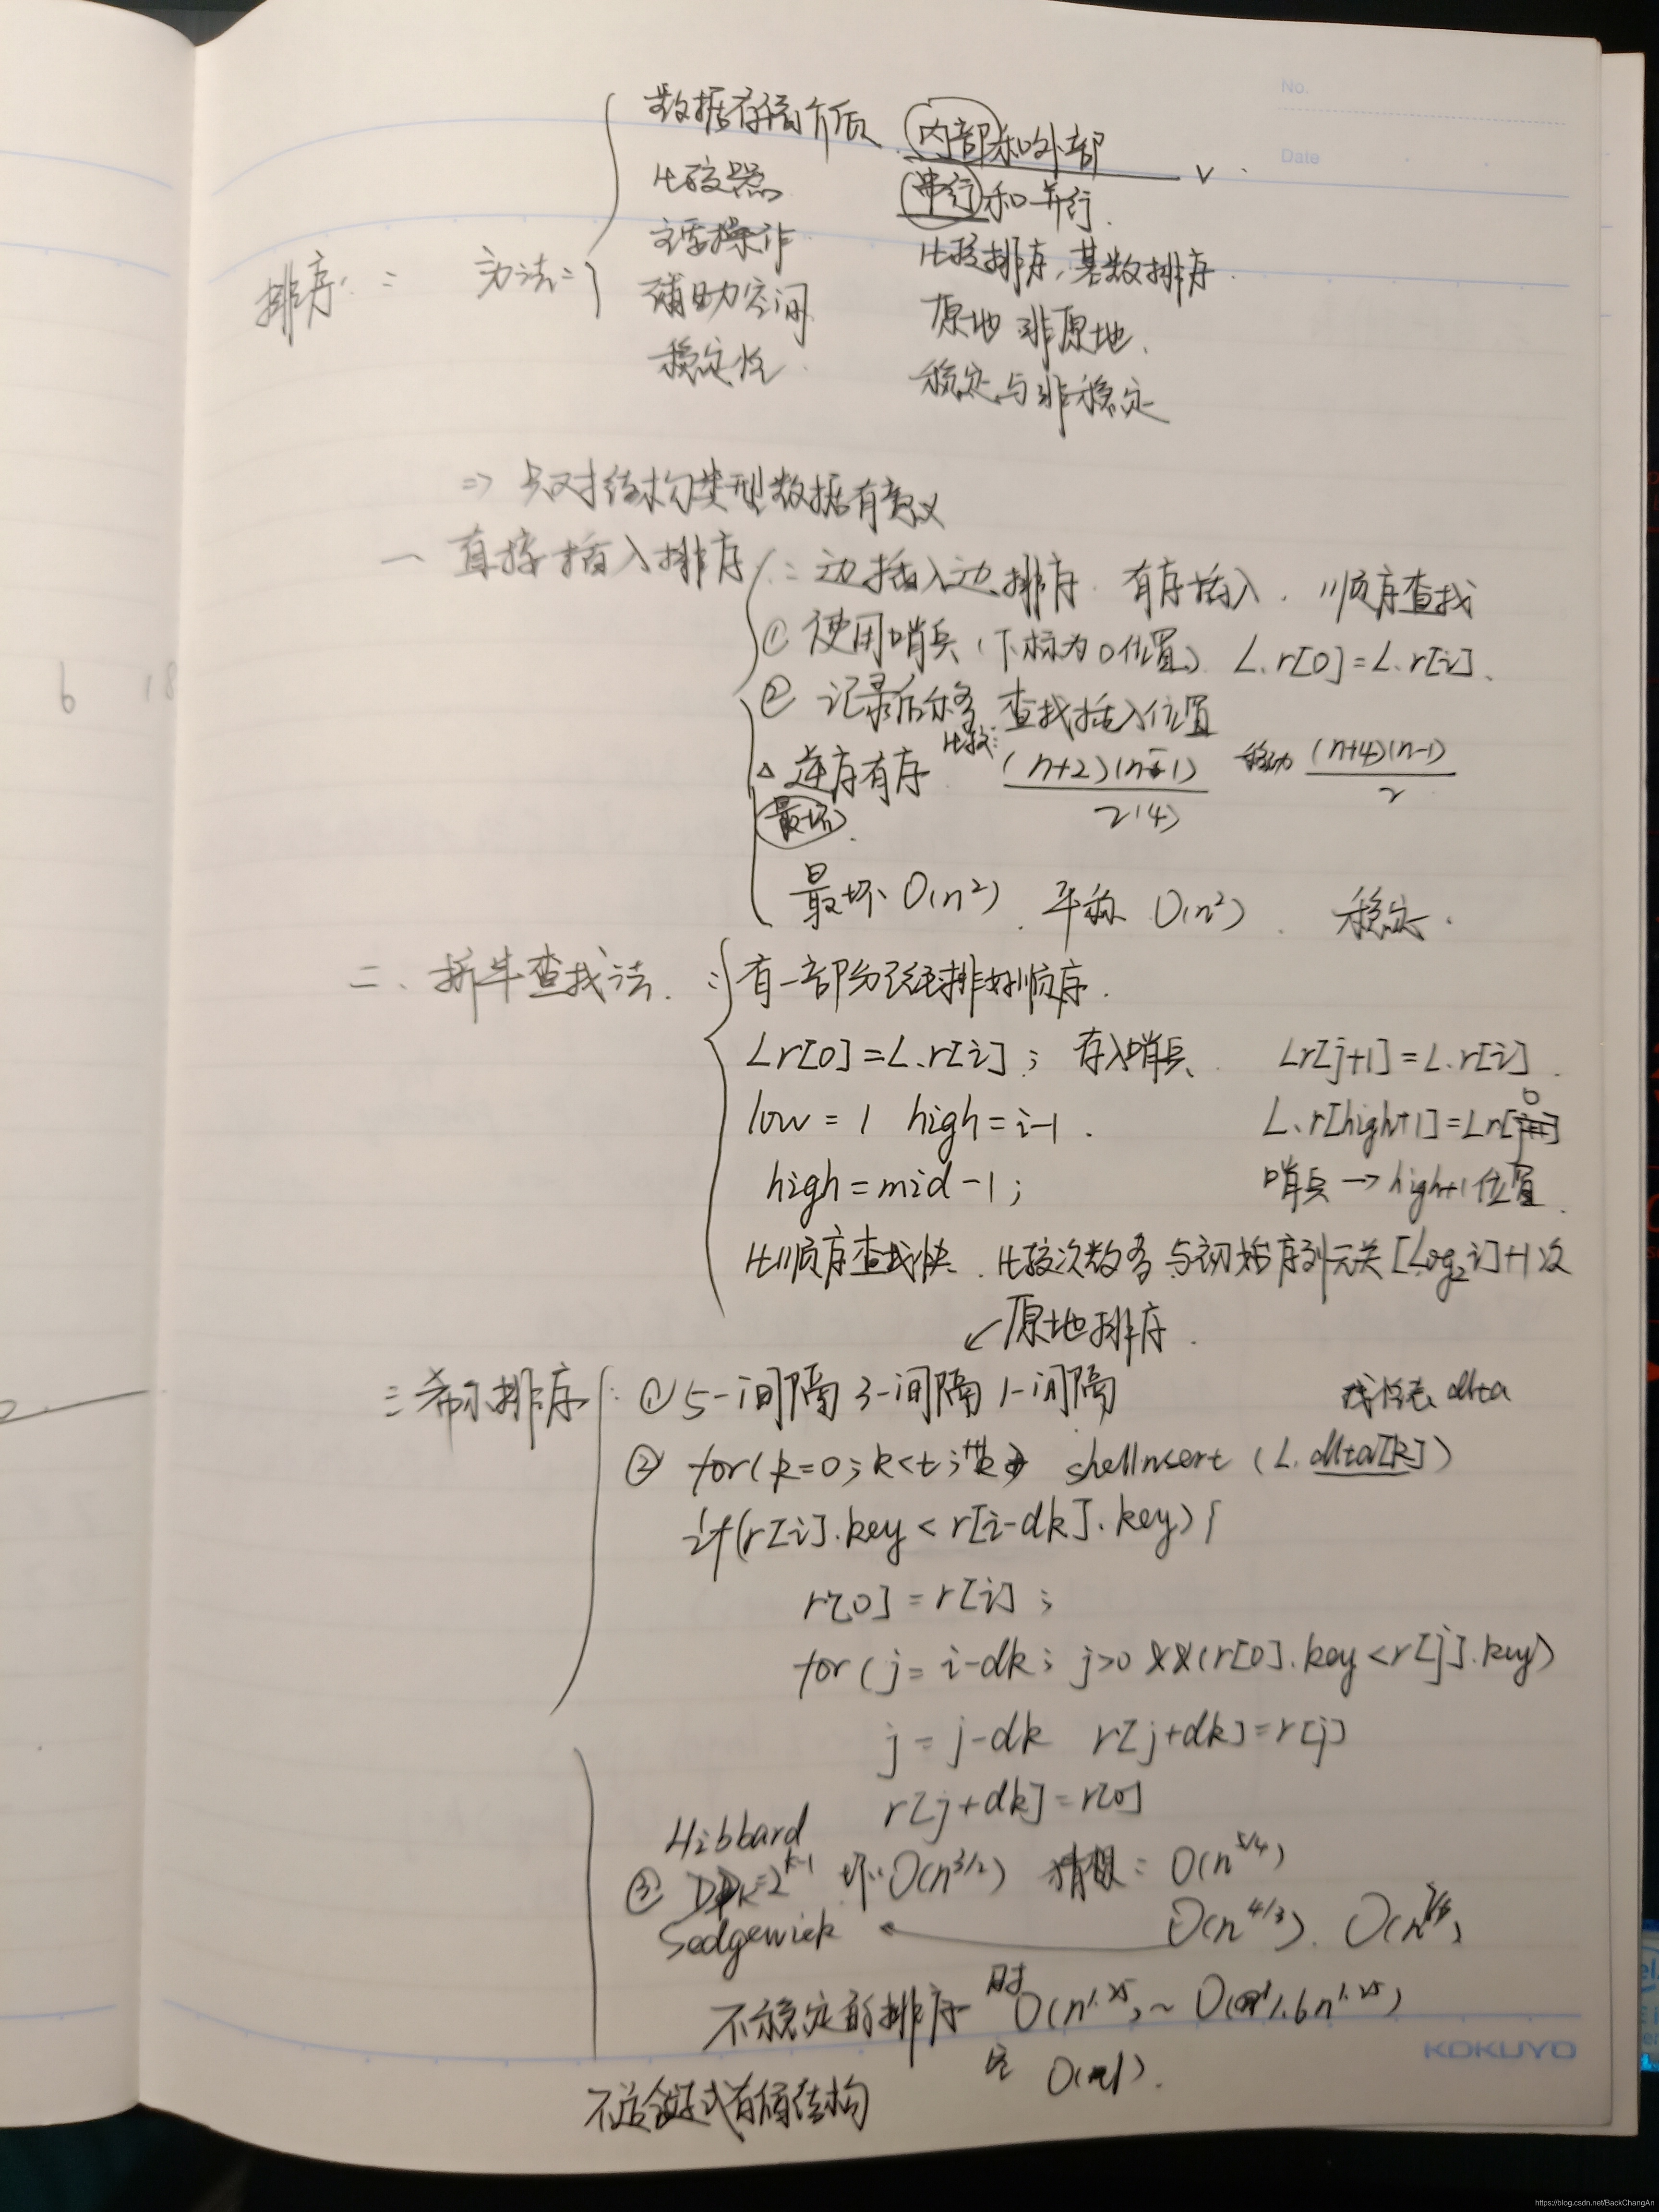 No.
Date
数据存储介质 内部和外部
比较器 串行和并行.
主要操作 比较排序,基数排序.
排序: 方法: 辅助空间 原地 非原地.
稳定性 稳定与非稳定
⇒ 只对结构类型数据有意义
一 直接插入排序: 边插入边排序. 有序插入. 顺序查找
① 使用哨兵(下标为0位置) L.r[0]=L.r[i].
② 记录后移, 查找插入位置
△ 逆序有序 比较: (n+2)(n-1)/2(4) 移动 (n+4)(n-1)/2
最坏.
最坏 O(n²). 平称 O(n²). 稳定.
二、折半查找法. : 有一部分已经排好顺序.
Lr[0]=L.r[i]; 存入哨兵. Lr[j+1]=L.r[i].
low=1 high=i-1. L.r[high+1]=Lr[0]
high=mid-1; 哨兵→high+1位置.
比顺序查找快. 比较次数多 与初始序列无关 [Log₂i]+1次
↙原地排序.
三 希尔排序: ① 5-间隔 3-间隔 1-间隔 线性表 dlta
② for(k=0;k<t;++k) shellInsert (L.dlta[k])
if(r[i].key<r[i-dk].key){
r[0]=r[i];
for(j=i-dk; j>0 &&(r[0].key<r[j].key)
j=j-dk r[j+dk]=r[j]
r[j+dk]=r[0]
Hibbard
③ Dk=2^k-1 坏: O(n^3/2) 猜想: O(n^5/4)
Sedgewick ← O(n^4/3).
不稳定的排序 时 O(n^1.25)~O(1.6n^1.25)
空 O(1).
不适合链式存储结构
KOKUYO
6 18
https://blog.csdn.net/BackChangAn